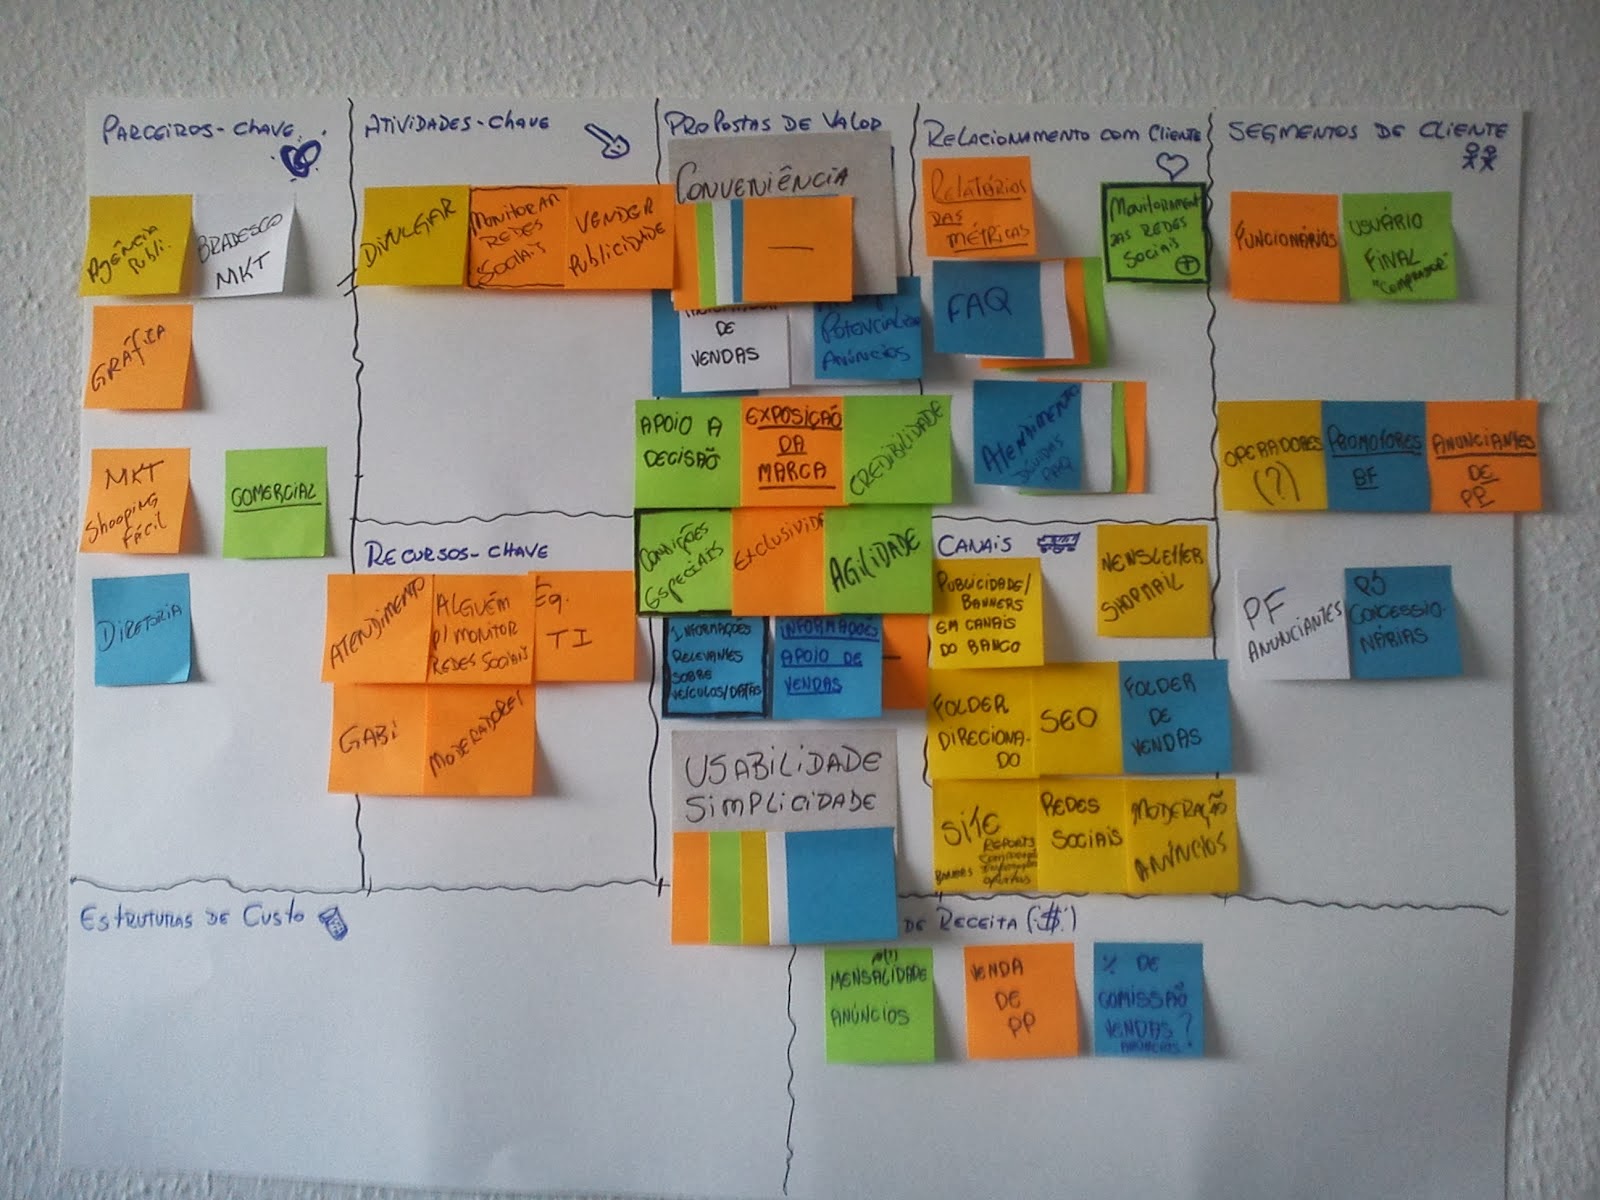 PARCEIROS-CHAVE
AGÊNCIA
Publi.
BRADESCO
MKT
GRÁFICA
MKT
Shopping
FÁCIL
COMERCIAL
DIRETORIA
ATIVIDADES-CHAVE
DIVULGAR
MONITORAR
REDES
SOCIAIS
VENDER
PUBLICIDADE
RECURSOS-CHAVE
ATENDIMENTO
ALGUÉM
P/ MONITOR
REDES SOCIAIS
EQ.
TI
GABI
MODERADORES
PROPOSTAS DE VALOR
CONVENIÊNCIA
DE
VENDAS
ANÚNCIOS
APOIO A
DECISÃO
EXPOSIÇÃO
DA
MARCA
CREDIBILIDADE
CONDIÇÕES
ESPECIAIS
EXCLUSIVID
AGILIDADE
INFORMAÇÕES
RELEVANTES
SOBRE
VEÍCULOS/DATAS
INFORMAÇÕES
APOIO DE
VENDAS
USABILIDADE
SIMPLICIDADE
RELACIONAMENTO COM CLIENTE
RELATÓRIOS
DAS
MÉTRICAS
MONITORAMENT
DAS REDES
SOCIAIS
+
FAQ
ATENDIMENTO
DÚVIDAS
FAQ
CANAIS
PUBLICIDADE/
BANNERS
EM CANAIS
DO BANCO
NEWSLETTER
SHOPMAIL
FOLDER
DIRECIONA-
DO
SEO
FOLDER
DE
VENDAS
SITE
REPORTS
BANNERS
REDES
SOCIAIS
MODERAÇÃO
ANÚNCIOS
SEGMENTOS DE CLIENTE
FUNCIONÁRIOS
USUÁRIO
FINAL
"COMPRADOR"
OPERADORES
(?)
PROMOTORES
BF
ANUNCIANTES
DE
PP
PF
ANUNCIANTES
PJ
CONCESSIO-
NÁRIAS
ESTRUTURAS DE CUSTO
DE RECEITA ($)
MENSALIDADE
ANÚNCIOS
VENDA
DE
PP
% DE
COMISSÃO
VENDAS?